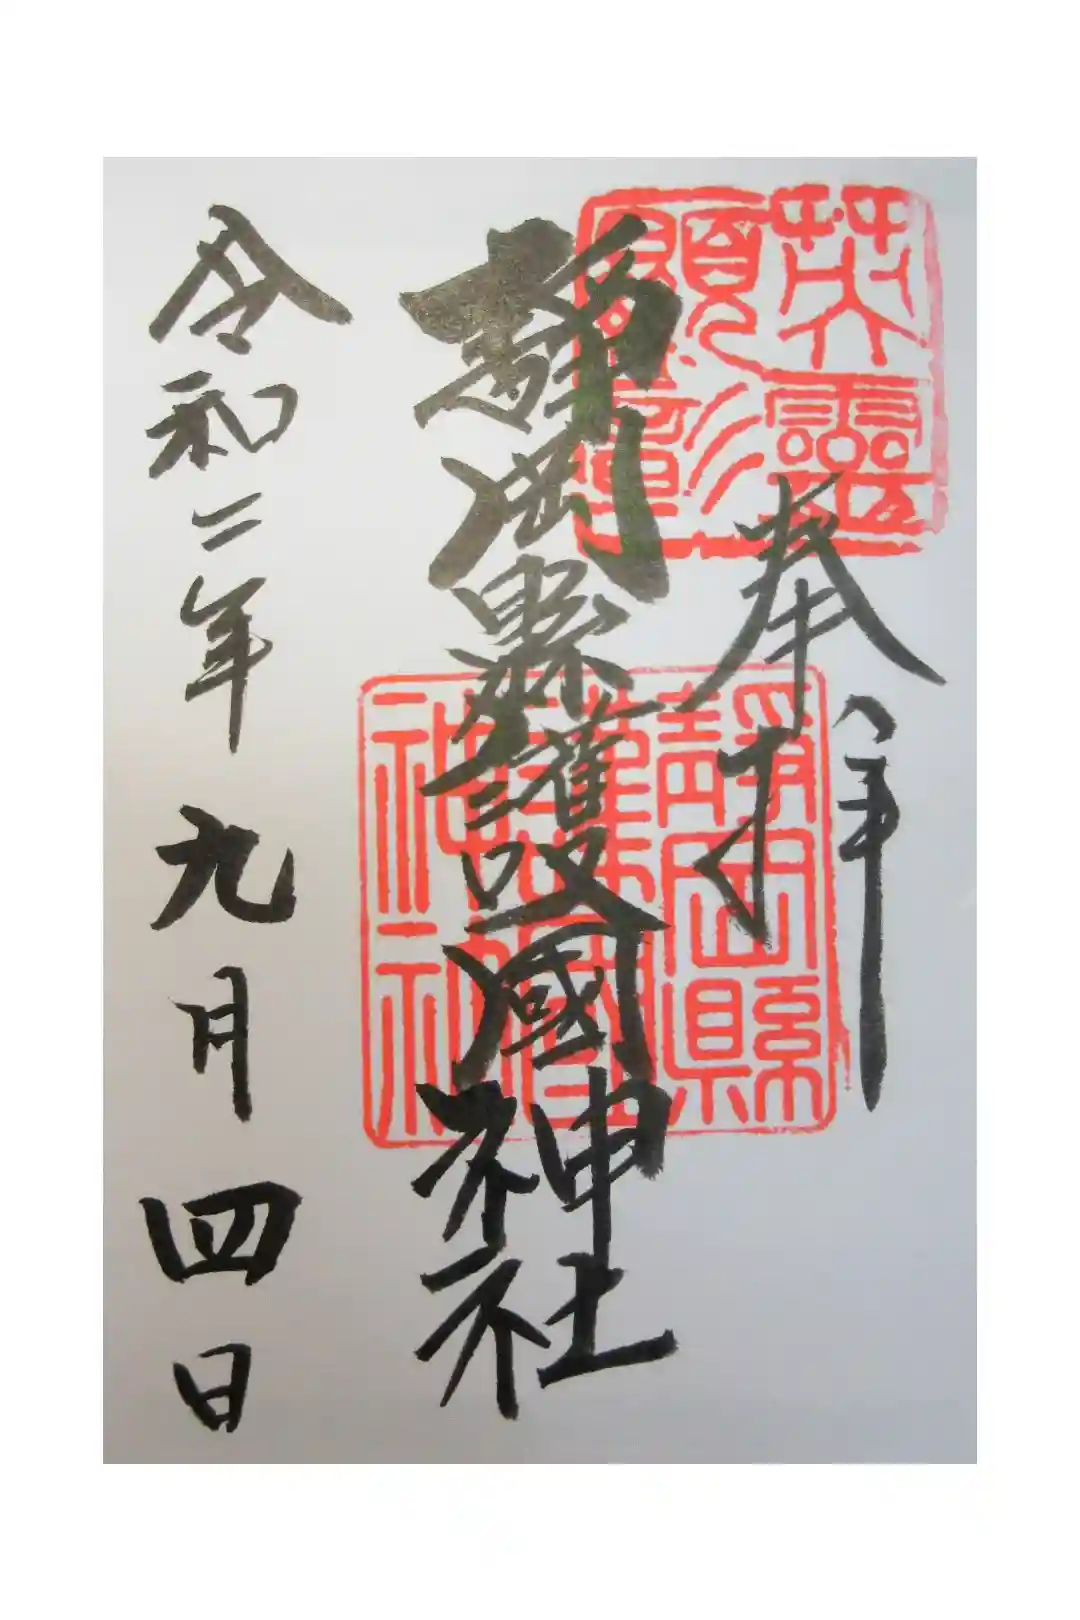 奉拝
靜岡縣護國神社
令和二年九月四日
英靈
顕彰
靜岡縣
護國
神社